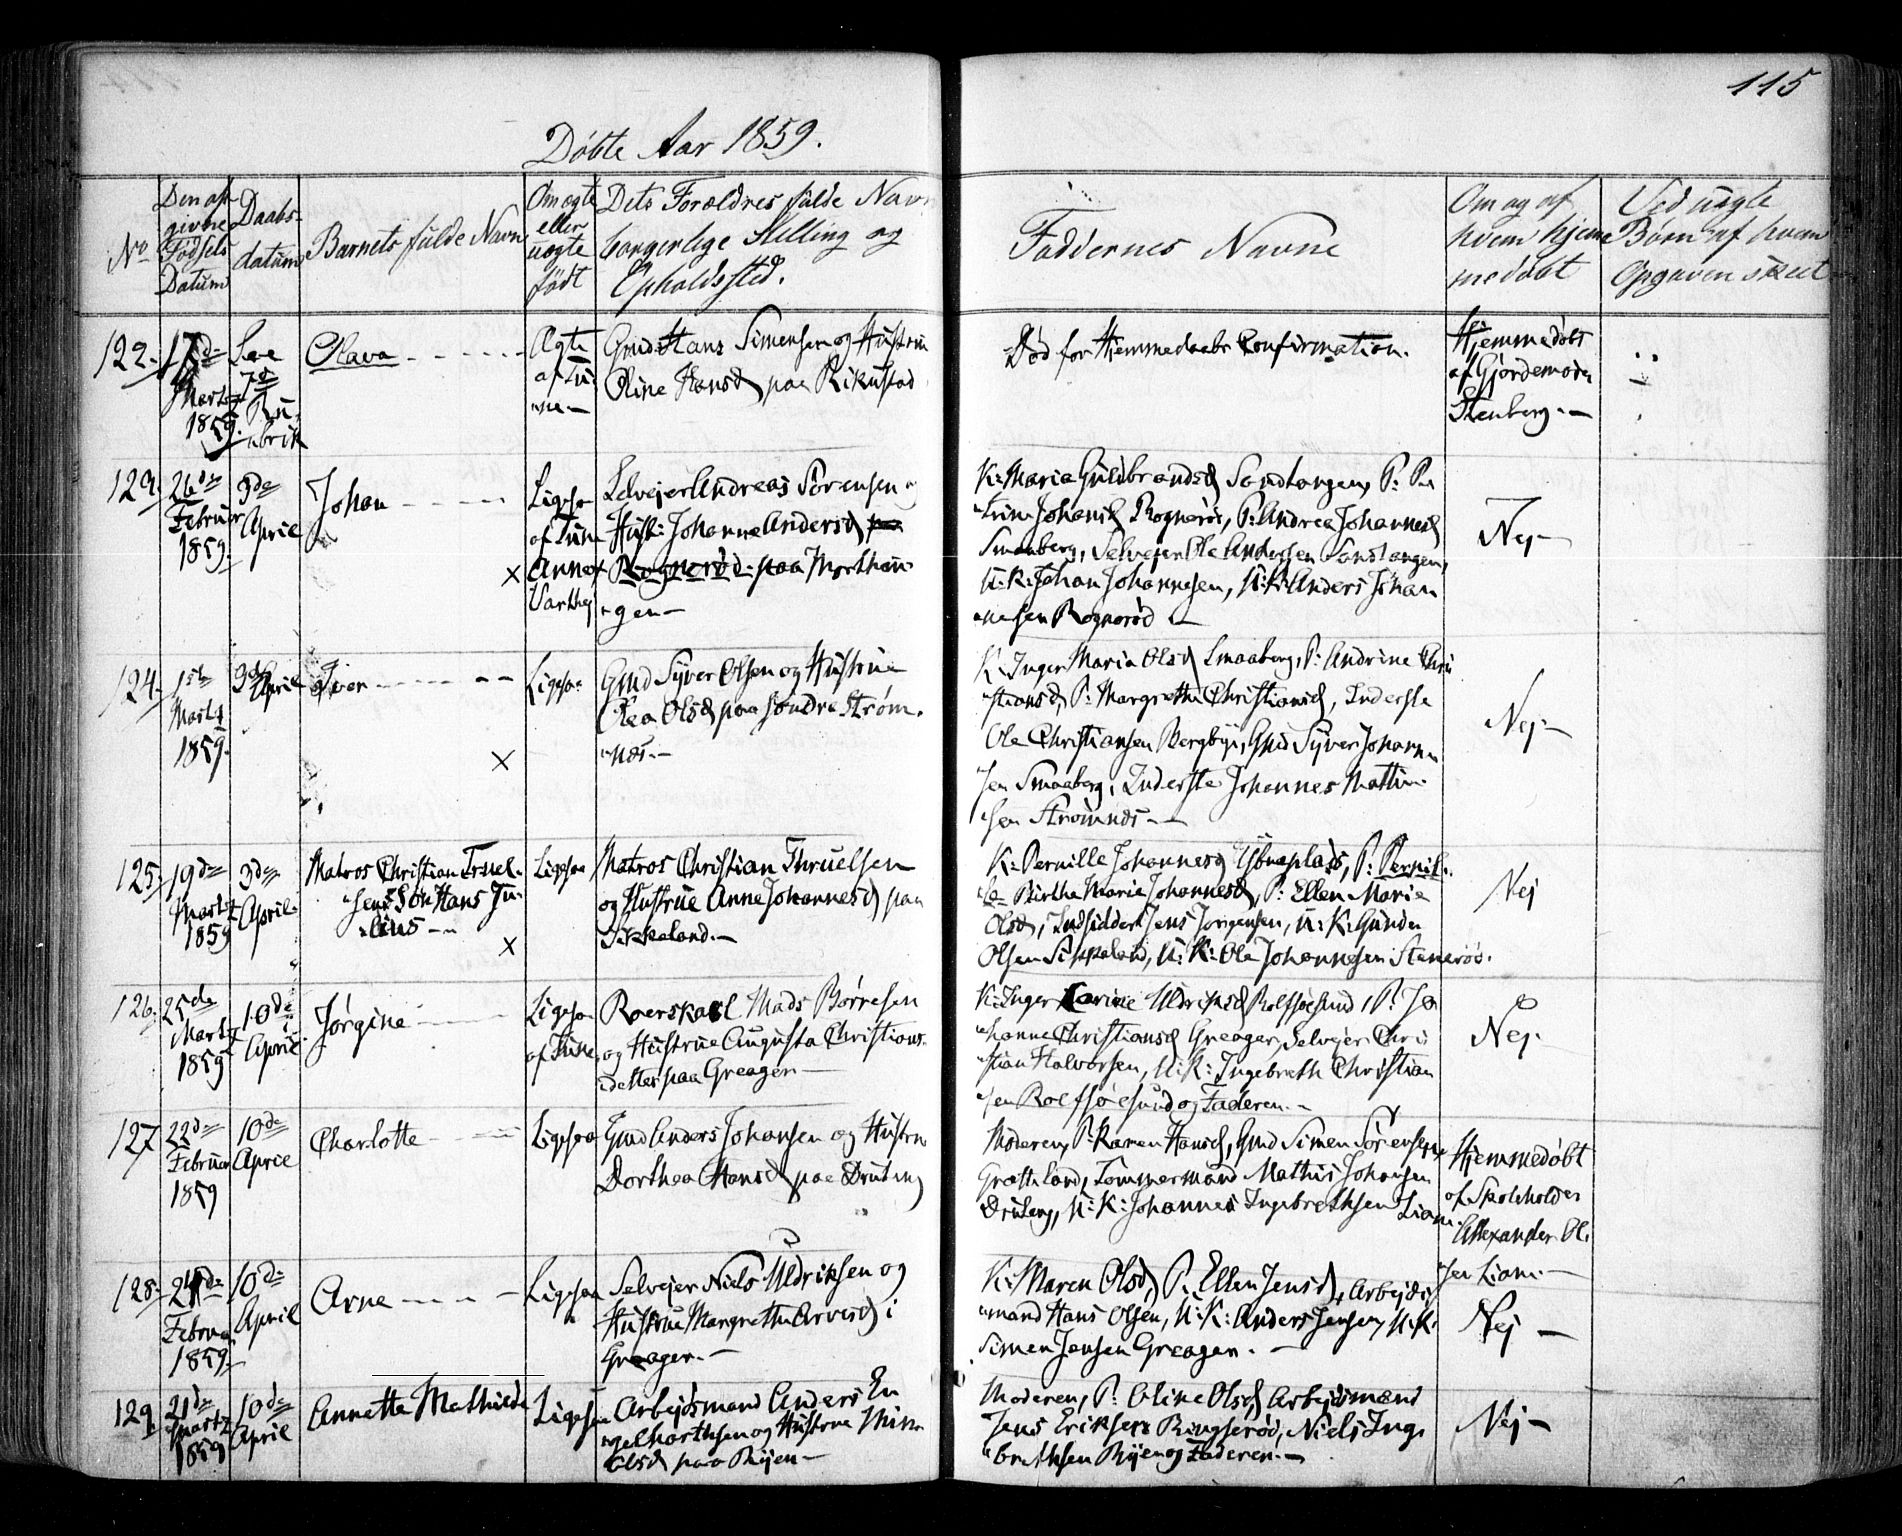 115
Döbte Aar 1859.
No
Den an-
givne
Födsels
Datum
Daabs-
datum
Barnets fulde Navn
Om ægte
eller
uægte
födt
Dets Forældres fulde Navn
borgerlige Stilling og
Opholdssted.
Faddernes Navne
Om og af
hvem hjem
medöbt
Ved uægte
Börn af hvem
Opgaven skeet
122.
17de
Marts
1859.
See
7de
Ru-
brik
Olava
Ægte
af Tu-
ne
Gmd Hans Simensen og Hustru
Oline Hansd paa Rikustad
Död for Hjemmedaabs Confirmation.
Hjemmedöbt
af Gjordemoder
Stenberg.
123.
26de
Februar
1859.
3de
April
Johan
Ligesaa
af Tune
Annex
Varteig
Selveier Andreas Sörensen og
Hust: Johanne Andersd
Rognerød paa Morthau-
gen
K: Maria Guldbrandsd Sandtangen, P: Pe-
trine Johansd Rogneröd, P: Andrea Johannesd
Smaaberg, Selveier Ole Andersen Sandtangen,
U: K: Johan Johannesen, U: K: Anders Johan-
nesen Rogneröd
Nej
124.
1ste
Marts
1859.
3de April
Iver
Ligesaa
Gmd Syver Olsen og Hustrue
Olea Olsd paa söndre Ström-
næs.
K: Inger Maria Olsd Smaaberg, P: Andrine Chri-
stiansd, P: Margrethe Christiansd, Inderste
Ole Christiansen Bergbye, Gmd Syver Johanne-
sen Smaaberg, Inderste Johannes Mathi-
sen Strömnæs.
Nej.
125.
19de
Marts
1859
3de
April
Matros Christian Truel-
sens Sön Hans Ju-
lius
Ligesaa
Matros Christian Thruelsen
og Hustrue Anne Johannesd paa
Sikkeland.
K: Pernille Johannesd, P: Pernil-
le Birthe Marie Johannesd, P: Ellen Marie
Olsd, Indsidder Jens Jörgensen, U: K: Gunder
Olsen Sikkeland, U: K: Ole Johannesen Steneröd.
Nej
126.
25de
Marts
1859
10de
April
Jörgine
Ligesaa
af Tune
Roerskarl Mads Börresen
og Hustrue Augusta Christians-
datter paa Greager
K: Inger Karine Uldriksd Rolfsöesund, P: Jo-
hanne Christiansd Greager, Selveier Chri-
stian Halvorsen, U: K: Ingebreth Christian-
sen Rolfsöesund og Faderen.
Nej.
127
22de
Februar
1859
10de
April
Charlotte
Ligesaa
Gmd Anders Johansen og Hustru
Dorthea Hansd paa Drüteng
Moderen, P: Karen Hansd, Gmd Simen Sörensen
Gretteland, Tömmermand Mathis Johansen
Drüteng, U: K: Johannes Ingebrethsen Liane
Hjemmedöbt
af Skoleholder
Alexander Ol-
sen Liane.
128.
24de
Februar
1859.
10de
April
Arne
Ligesaa
Selvejer Niels Uldriksen og
Hustrue Margrethe Arvesd i
Greager.
K: Maren Olsd, P: Ellen Jensd, Arbejds-
mand Hans Olsen, U: K: Anders Jensen, U: K:
Simen Jensen Greager.
Nej
129.
21de
Marts
1859
10de
April
Annette Mathilde
Ligesaa
Arbejdsmand Anders En-
gelbrethsen og Hustrue
Olsd paa Ryen
Moderen, P: Oline Olsd, Arbejdsmænd
Jens Eriksen Ringseröd, Niels Inge-
brethsen Ryen og Faderen.
Nej